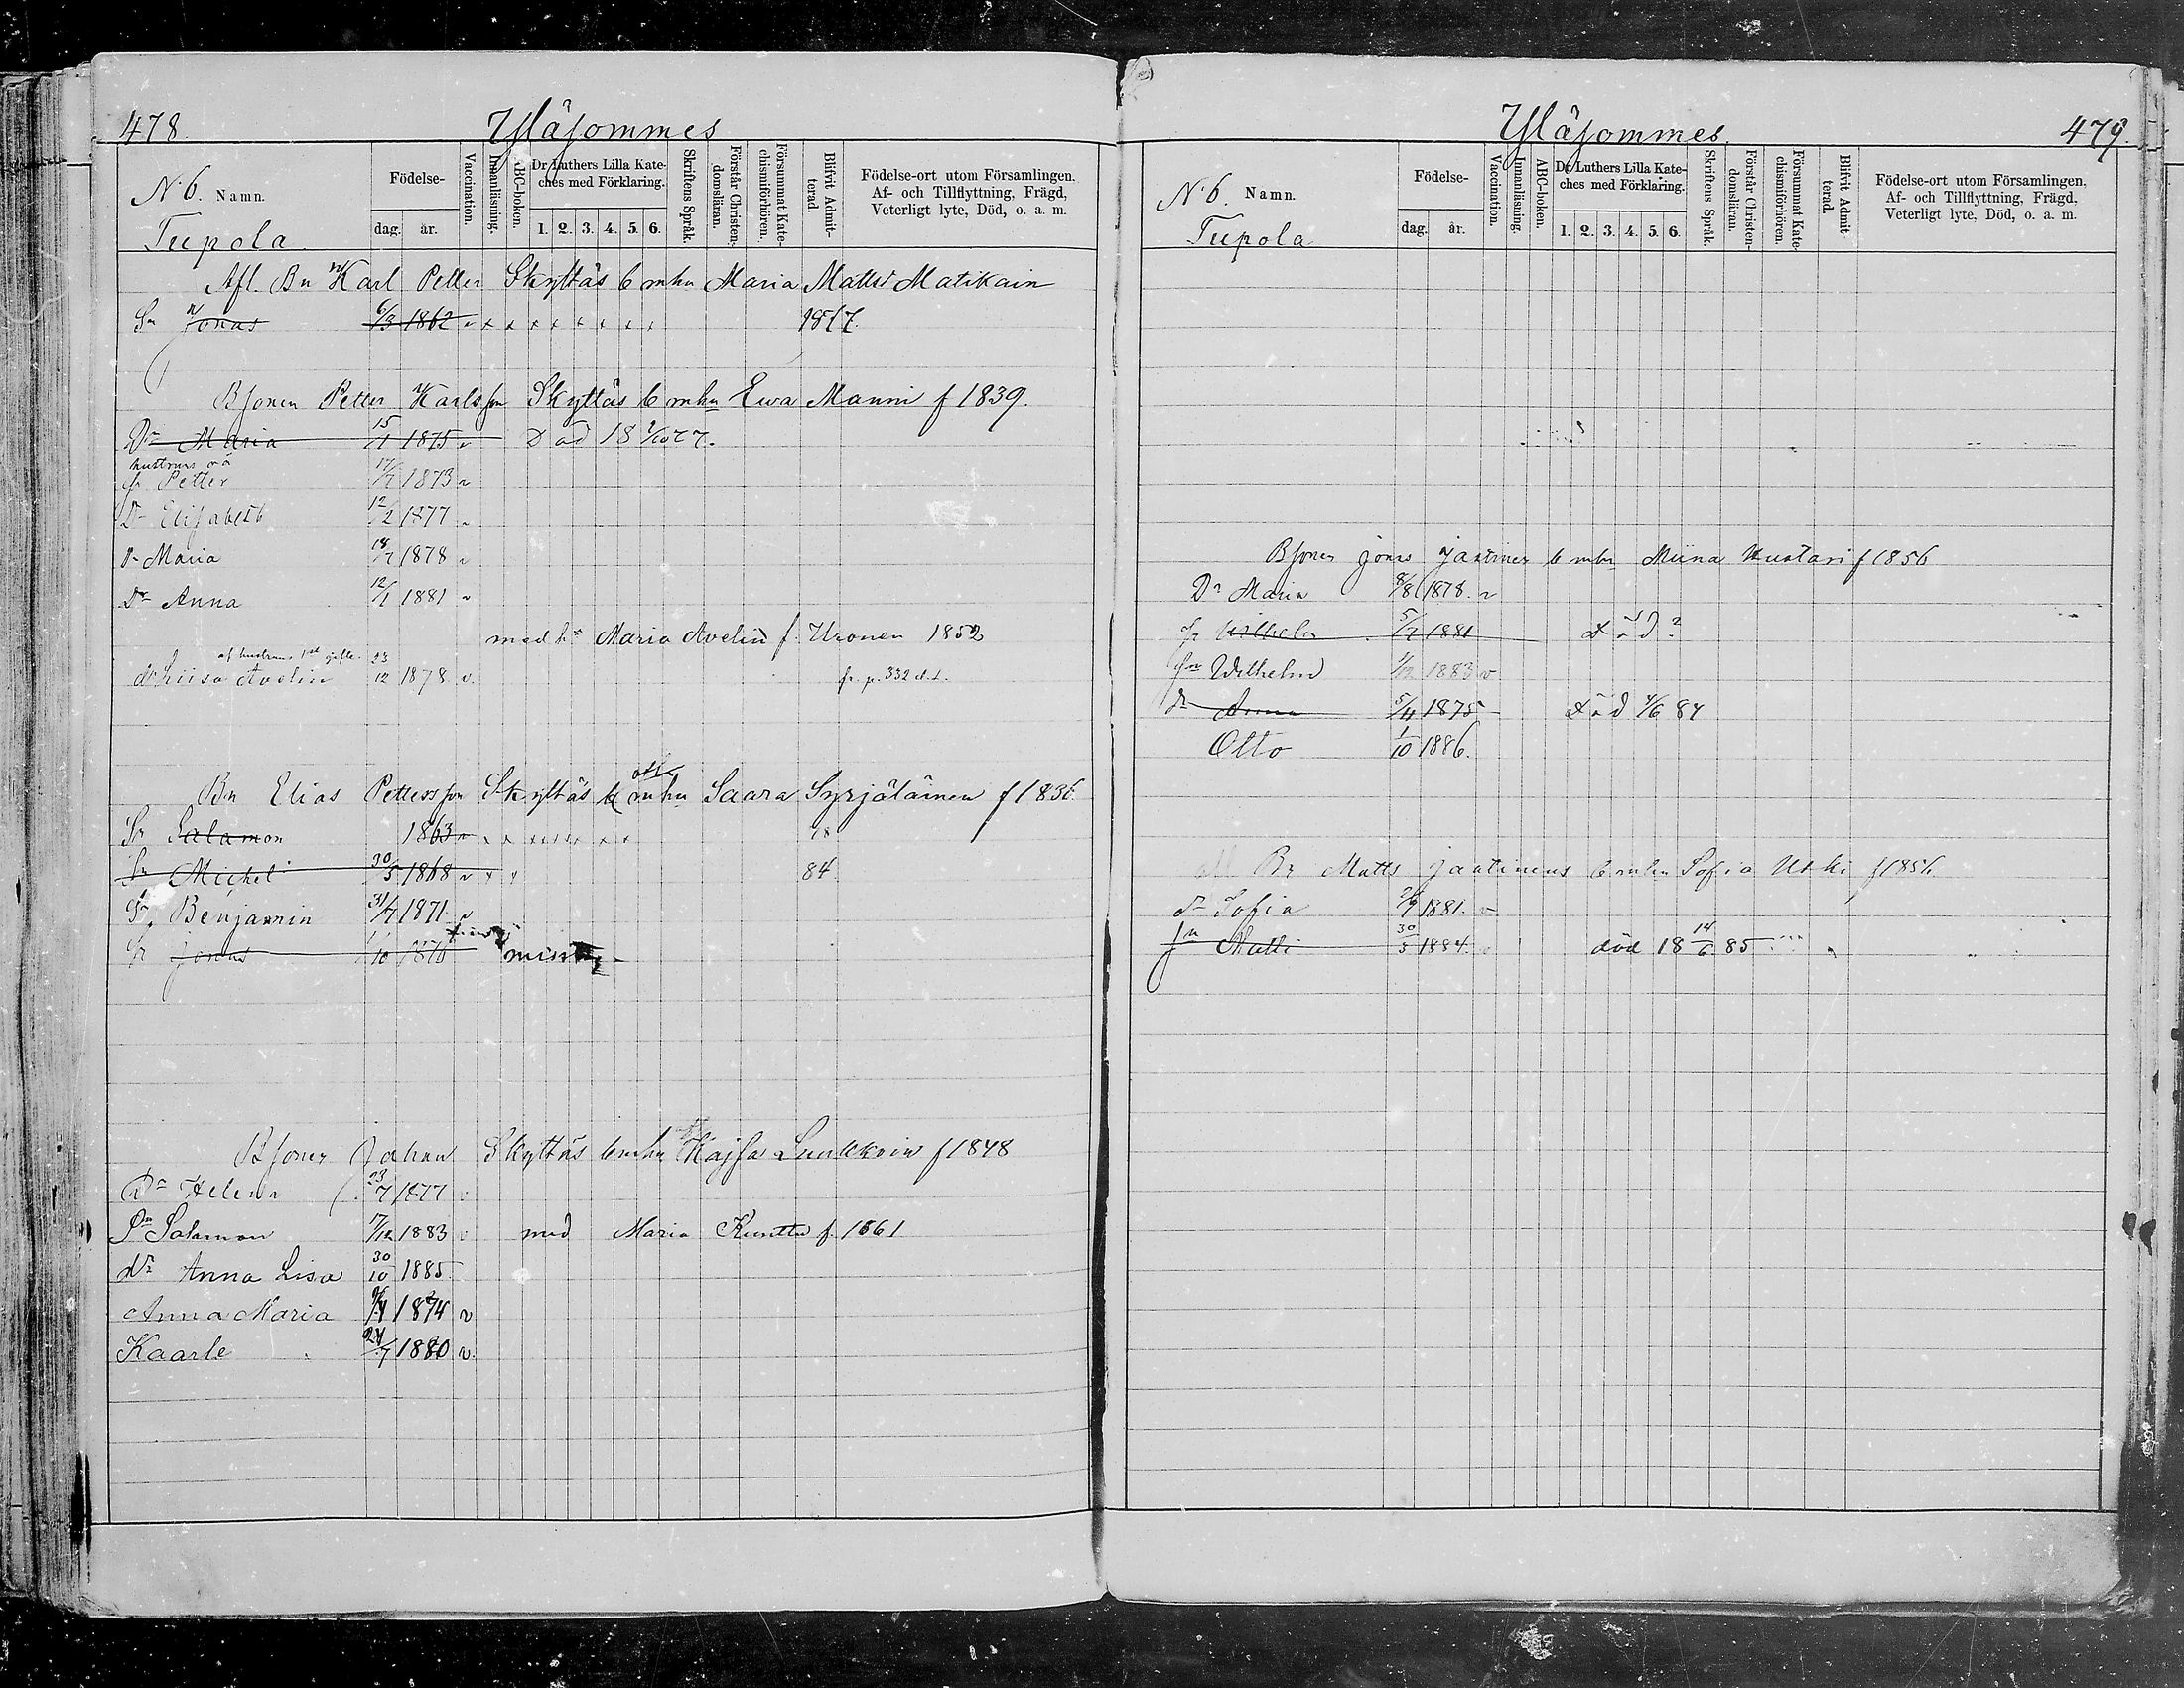 478. Yläjommes
N:6. Namn. Födelse- Vaccination. Innanläsning. ABC-boken. Dr Luthers Lilla Kateches med Förklaring. Skriftens Språk. Förstår Christendomsläran. Försummat Katechismiförhören. Blifvit Admitterad. Födelse-ort utom Församlingen, Af- och Tillflyttning, Frägd, Veterligt lyte, Död, o. a. m.
Tupola dag. år. 1. 2. 3. 4. 5. 6.
Afl. Bn Karl Petter Skyttäs b mhu Maria Mattsd Matikain
Sn Jonas 6/3 1862 v x x x x x x x x
Bsonen Petter Karlsson Skyttäs b mhu Ewa Manni f 1839.
Dr Maria 15/1 1875 v Död 18 /10 77.
hustruns oä
sn Petter 17/7 1873 v
Dr Elisabeth 12/2 1877 v
Dr Maria 18/7 1878 v
Dr Anna 12/1 1881 v
med h. Maria Avelin f. Uronen 1852
af hustruns 1sta gifte.
dr Liisa Avelin 23/12 1878 v. fr. p. 332 d. 1.
Bn Elias Pettersson Skyttäs b mhu Saara Syrjäläinen f 1836.
Sn Salamon 1863 v x x x x x x x x
Sn Michel 30/5 1868 v x x 84
Sn Benjamin 31/7 1871 v
Sn Jonas /10 1876
Bsonen Johan Skyttäs b mhu Kajsa Luukkoin f 1848
Dr Helena 23/7 1877 v
Sn Salamon 17/12 1883 v med Maria Kunttu f. 1861
dr Anna Lisa 30/10 1885.
Anna Maria 1874 v
Kaarle 24/7 1880 v.
Yläjommes 479.
N:6. Namn. Födelse- Vaccination. Innanläsning. ABC-boken. Dr Luthers Lilla Kateches med Förklaring. Skriftens Språk. Förstår Christendomsläran. Försummat Katechismiförhören. Blifvit Admitterad. Födelse-ort utom Församlingen, Af- och Tillflyttning, Frägd, Veterligt lyte, Död, o. a. m.
Tupola dag. år. 1. 2. 3. 4. 5. 6.
Bsonen Jonas Jaatinen b mhu Miina Mustari f 1856
Dr Maria 8/8 1878. v
sn Wilhelm 5/7 1881 död ?
sn Wilhelm 1/12 1883 v
dr Anna 5/11 1875 död /6 84
Otto 1/10 1886.
Bn Matts Jaatinens b mhu Sofia Uski f 1856
dr Sofia 1881. v
sn Matti 30/5 1884. v död 18 14/6 85